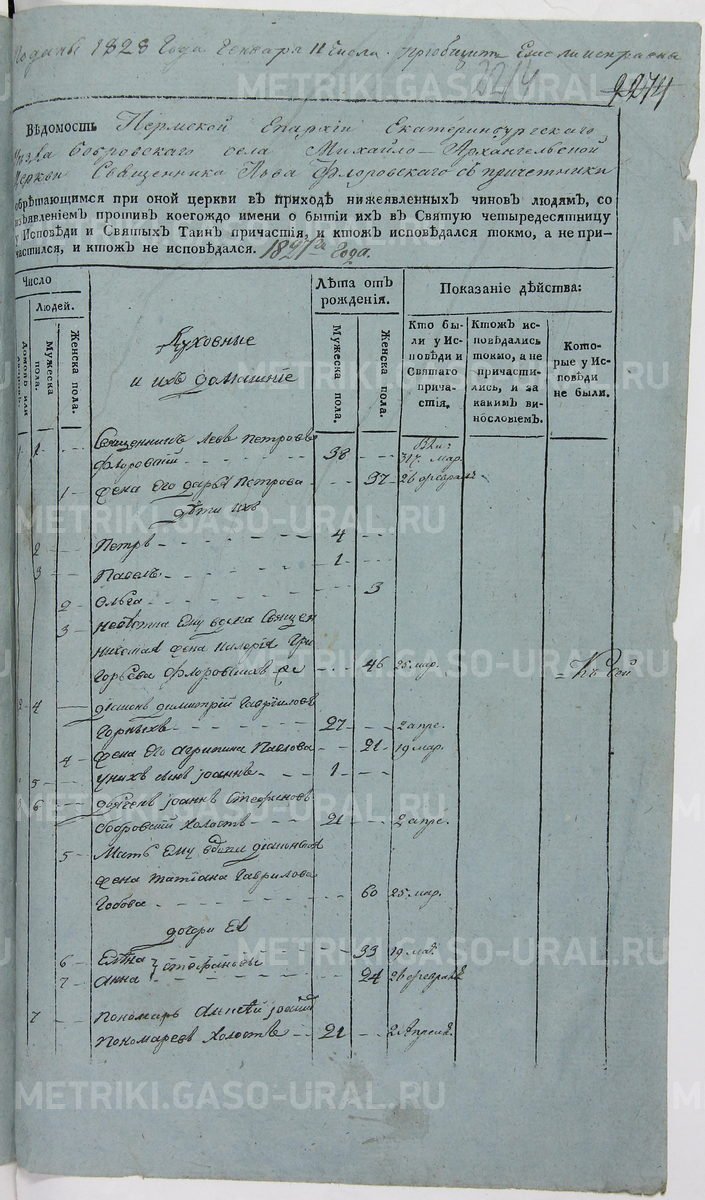 1828 Года Генваря 11 числа
2274
Вѣдомость Пермской Епархіи Екатеринбургскаго
Бобровскаго села Михайло-Архангельской
Церкви Священника Льва Флоровскаго съ причетники
обрѣтающимся при оной церкви въ приходѣ нижеявленныхъ чиновъ людямъ, со
изъявленіемъ противъ коегождо имени о бытіи ихъ въ Святую четыредесятницу
у Исповѣди и Святыхъ Таинъ причастія, и ктожъ исповѣдался токмо, а не при-
частился, и ктожъ не исповѣдался. 1827го Года.
Число
Людей.
Мужеска пола.
Женска пола.
Духовные
и ихъ домашніе
Лѣта отъ
рожденія.
Мужеска пола.
Женска пола.
Показаніе дѣйства:
Кто бы-
ли у Ис-
повѣди и
Святаго
прича-
стія.
Ктожъ ис-
повѣдались
токмо, а не
причасти-
лись, и за
какимъ ви-
нословіемъ.
Кото-
рые у Ис-
повѣди
не были.
1 1 Священникъ Левъ Петровъ
Флоровскій 38 мар.
1 жена Его Дарья Петрова 37 26 февраля
дѣти ихъ
2 Петръ 4
3 Павелъ 1
2 Ольга 3
3 невѣстка Ему вдова Священ
Николая жена Гри
горьева 46 25 мар.
2 4 діаконъ Димитрій Гавриловъ
Горныхъ 27 2 апре.
4 жена Его Агрипина Павлова 21 19 мар.
5 у нихъ сынъ Іоаннъ 1
6 Іоаннъ Стефановъ
Бобровскій холостъ 21 2 апре.
5 Мать Ему вдова діаконская
жена Татіана Гаврилова
60 25 мар.
дочери Ея
6 Елена 33 19 ма.
7 Анна 24 26 февраля
7 Пономарь Алексѣй
Пономаревъ холостъ 21 2 Апреля
METRIKI.GASO-URAL.RU